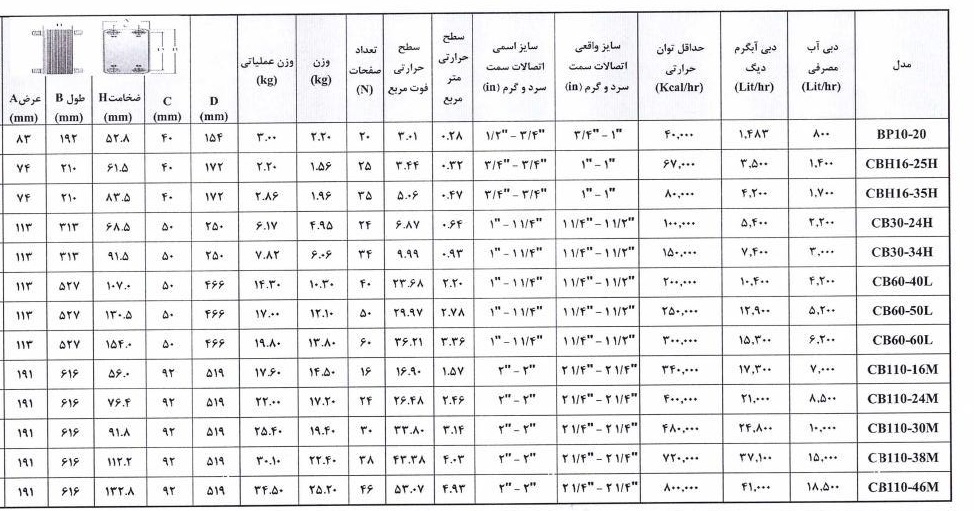 مدل | دبی آب مصرفی (Lit/hr) | دبی آبگرم دیگ (Lit/hr) | حداقل توان حرارتی (Kcal/hr) | سایز واقعی اتصالات سمت سرد و گرم (in) | سایز اسمی اتصالات سمت سرد و گرم (in) | سطح حرارتی متر مربع | سطح حرارتی فوت مربع | تعداد صفحات (N) | وزن (kg) | وزن عملیاتی (kg) | D (mm) | C (mm) | ضخامت H (mm) | طول B (mm) | عرض A (mm)
BP10-20 | ۸۰۰ | ۱,۴۸۳ | ۴۰,۰۰۰ | ۳/۴" – ۱" | ۱/۲" – ۳/۴" | ۰.۲۸ | ۳.۰۱ | ۲۰ | ۲.۲۰ | ۳.۰۰ | ۱۵۴ | ۴۰ | ۵۲.۸ | ۱۹۲ | ۸۳
CBH16-25H | ۱,۴۰۰ | ۳,۵۰۰ | ۶۷,۰۰۰ | ۱" – ۱" | ۳/۴" – ۳/۴" | ۰.۳۲ | ۳.۴۴ | ۲۵ | ۱.۵۶ | ۲.۲۰ | ۱۷۲ | ۴۰ | ۶۱.۵ | ۲۱۰ | ۷۴
CBH16-35H | ۱,۷۰۰ | ۴,۲۰۰ | ۸۰,۰۰۰ | ۱" – ۱" | ۳/۴" – ۳/۴" | ۰.۴۷ | ۵.۰۶ | ۳۵ | ۱.۹۶ | ۲.۸۶ | ۱۷۲ | ۴۰ | ۸۳.۵ | ۲۱۰ | ۷۴
CB30-24H | ۲,۲۰۰ | ۵,۴۰۰ | ۱۰۰,۰۰۰ | ۱ ۱/۴" – ۱ ۱/۲" | ۱" – ۱ ۱/۴" | ۰.۶۴ | ۶.۸۷ | ۲۴ | ۴.۹۵ | ۶.۱۷ | ۲۵۰ | ۵۰ | ۶۸.۵ | ۳۱۳ | ۱۱۳
CB30-34H | ۳,۰۰۰ | ۷,۴۰۰ | ۱۵۰,۰۰۰ | ۱ ۱/۴" – ۱ ۱/۲" | ۱" – ۱ ۱/۴" | ۰.۹۳ | ۹.۹۹ | ۳۴ | ۶.۰۶ | ۷.۸۲ | ۲۵۰ | ۵۰ | ۹۱.۵ | ۳۱۳ | ۱۱۳
CB60-40L | ۴,۲۰۰ | ۱۰,۴۰۰ | ۲۰۰,۰۰۰ | ۱ ۱/۴" – ۱ ۱/۲" | ۱" – ۱ ۱/۴" | ۲.۲۰ | ۲۳.۶۸ | ۴۰ | ۱۰.۳۰ | ۱۴.۳۰ | ۴۶۶ | ۵۰ | ۱۰۷.۰ | ۵۲۷ | ۱۱۳
CB60-50L | ۵,۲۰۰ | ۱۲,۹۰۰ | ۲۵۰,۰۰۰ | ۱ ۱/۴" – ۱ ۱/۲" | ۱" – ۱ ۱/۴" | ۲.۷۸ | ۲۹.۹۷ | ۵۰ | ۱۲.۱۰ | ۱۷.۰۰ | ۴۶۶ | ۵۰ | ۱۳۰.۵ | ۵۲۷ | ۱۱۳
CB60-60L | ۶,۲۰۰ | ۱۵,۳۰۰ | ۳۰۰,۰۰۰ | ۱ ۱/۴" – ۱ ۱/۲" | ۱" – ۱ ۱/۴" | ۳.۳۶ | ۳۶.۲۱ | ۶۰ | ۱۳.۸۰ | ۱۹.۸۰ | ۴۶۶ | ۵۰ | ۱۵۴.۰ | ۵۲۷ | ۱۱۳
CB110-16M | ۷,۰۰۰ | ۱۷,۳۰۰ | ۳۴۰,۰۰۰ | ۲ ۱/۴" – ۲ ۱/۴" | ۲" – ۲" | ۱.۵۷ | ۱۶.۹۰ | ۱۶ | ۱۴.۵۰ | ۱۷.۶۰ | ۵۱۹ | ۹۲ | ۵۶.۰ | ۶۱۶ | ۱۹۱
CB110-24M | ۸,۵۰۰ | ۲۱,۰۰۰ | ۴۰۰,۰۰۰ | ۲ ۱/۴" – ۲ ۱/۴" | ۲" – ۲" | ۲.۴۶ | ۲۶.۴۸ | ۲۴ | ۱۷.۲۰ | ۲۲.۰۰ | ۵۱۹ | ۹۲ | ۷۶.۴ | ۶۱۶ | ۱۹۱
CB110-30M | ۱۰,۰۰۰ | ۲۴,۸۰۰ | ۴۸۰,۰۰۰ | ۲ ۱/۴" – ۲ ۱/۴" | ۲" – ۲" | ۳.۱۴ | ۳۳.۸۰ | ۳۰ | ۱۹.۴۰ | ۲۵.۴۰ | ۵۱۹ | ۹۲ | ۹۱.۸ | ۶۱۶ | ۱۹۱
CB110-38M | ۱۵,۰۰۰ | ۳۷,۱۰۰ | ۷۲۰,۰۰۰ | ۲ ۱/۴" – ۲ ۱/۴" | ۲" – ۲" | ۴.۰۳ | ۴۳.۳۸ | ۳۸ | ۲۲.۴۰ | ۳۰.۱۰ | ۵۱۹ | ۹۲ | ۱۱۲.۲ | ۶۱۶ | ۱۹۱
CB110-46M | ۱۸,۵۰۰ | ۴۱,۰۰۰ | ۸۰۰,۰۰۰ | ۲ ۱/۴" – ۲ ۱/۴" | ۲" – ۲" | ۴.۹۳ | ۵۳.۰۷ | ۴۶ | ۲۵.۲۰ | ۳۴.۵۰ | ۵۱۹ | ۹۲ | ۱۳۲.۸ | ۶۱۶ | ۱۹۱